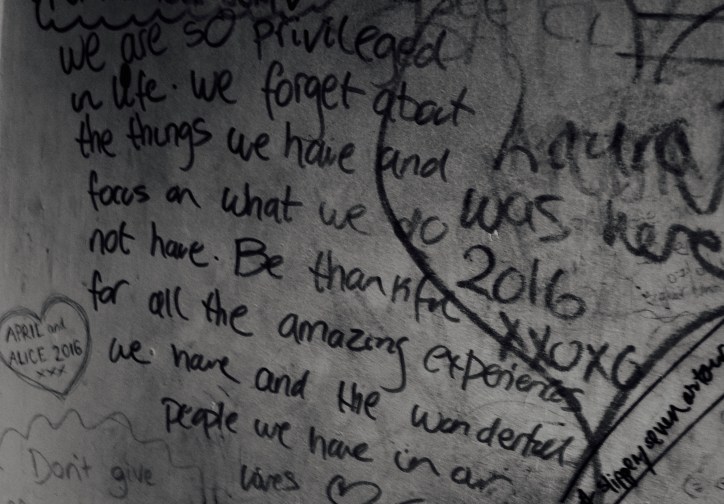 we are so privileged
in life. we forget about
the things we have and
focus on what we do
not have. Be thankful
for all the amazing experiences
we have and the wonderful
people we have in our
lives
was here
2016
XXOXO
APRIL and
ALICE 2016
xxx
Don't give